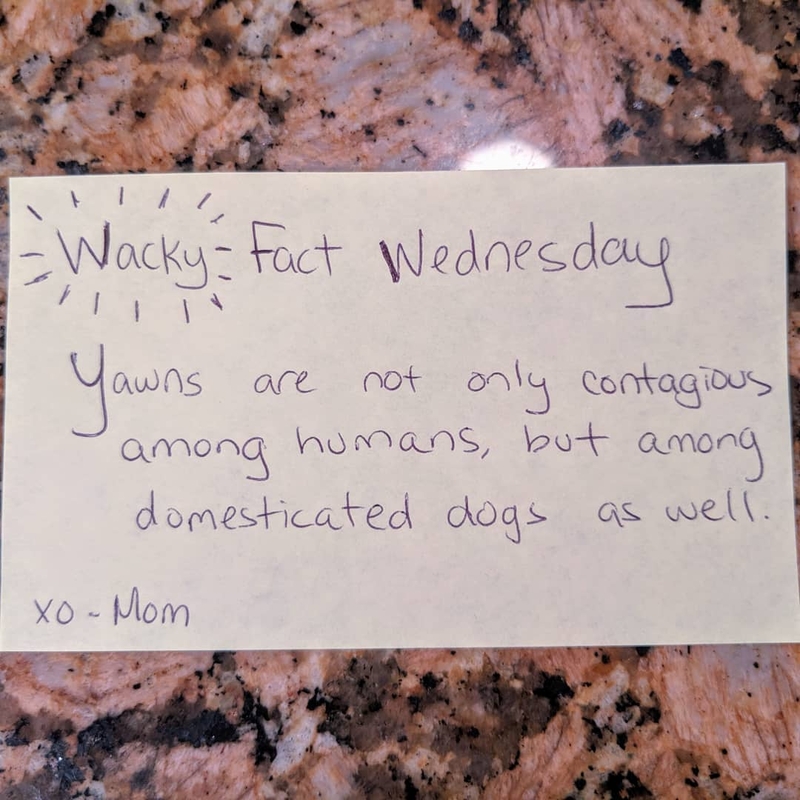 Wacky Fact Wednesday
Yawns are not only contagious
among humans, but among
domesticated dogs as well.
xo - Mom